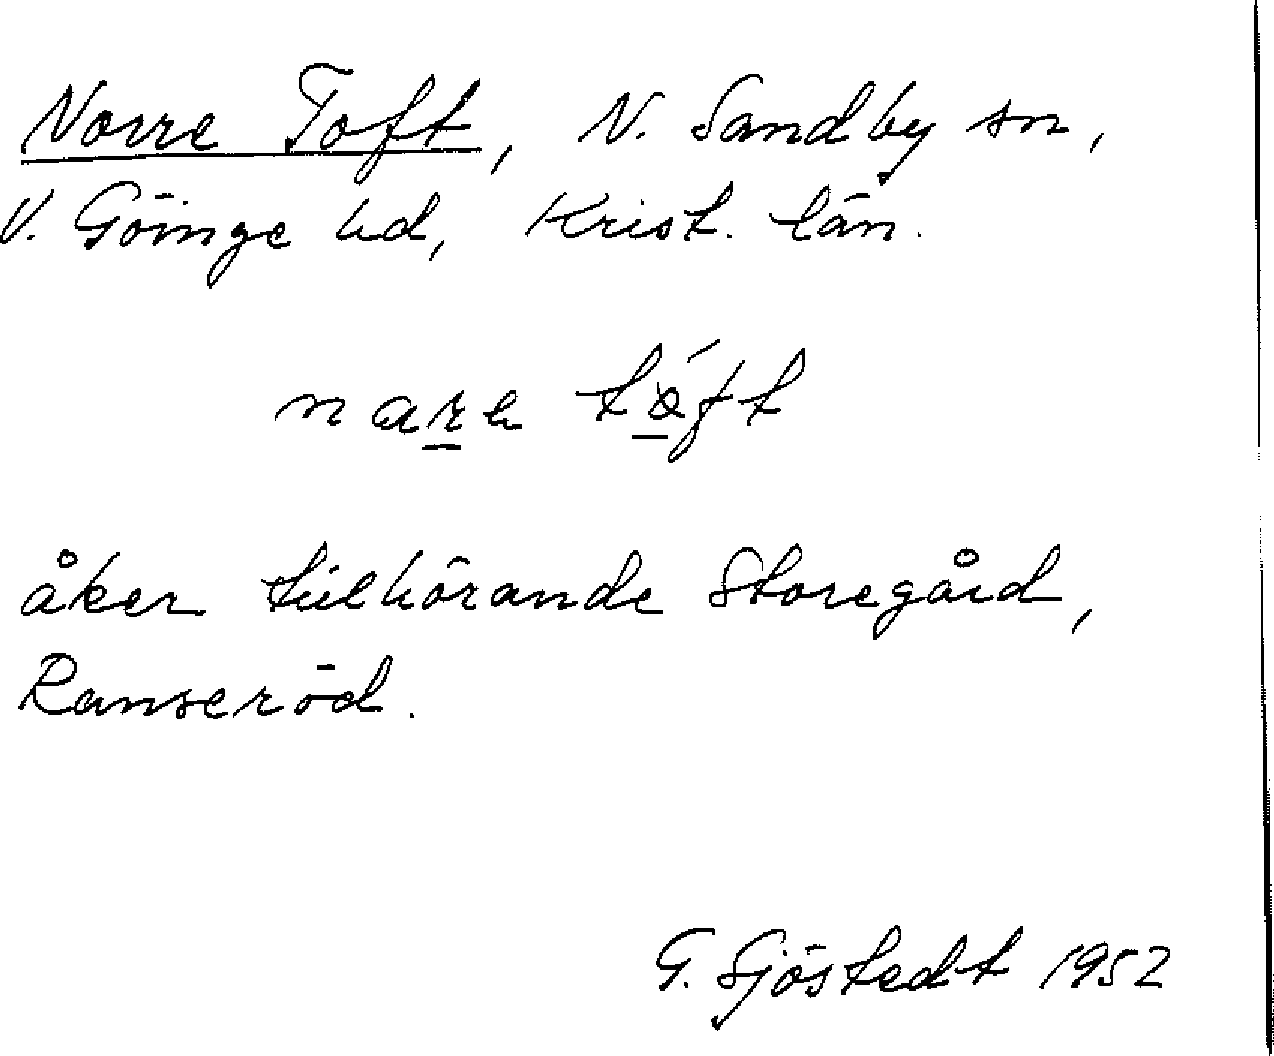 Norre Toft, N. Sandby sn,
V. Göinge hd, Krist. län.
nare tóft
åker tillhörande Storegård,
Ranseröd.
G. Sjöstedt 1952